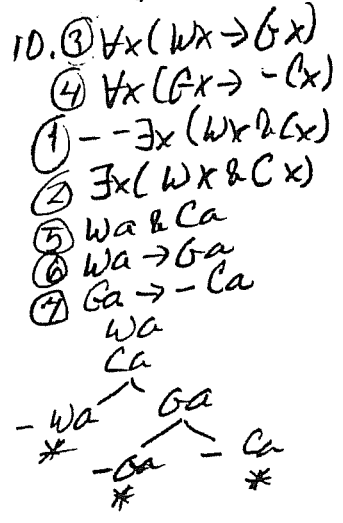 10. ③ ∀x(Wx→Gx)
④ ∀x(Gx→ -Cx)
① - -∃x(Wx&Cx)
② ∃x(Wx&Cx)
⑤ Wa&Ca
⑥ Wa→Ga
⑦ Ga→-Ca
Wa
Ca
-Wa Ga
* -Ga -Ca
* *